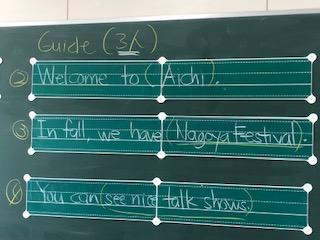 Guide (3人)
② Welcome to (Aichi).
③ In fall, we have (Nagoya Festival).
④ You can (see nice talk shows)